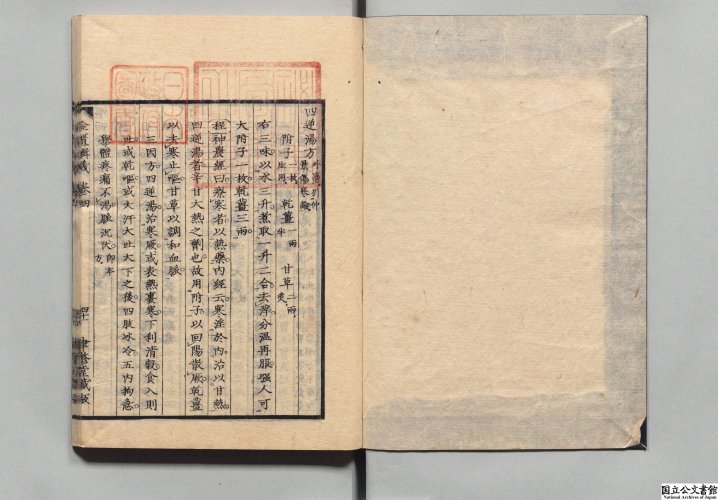 四逆湯方
附子一枚生用 乾薑一兩半 甘草二兩炙
右三味以水三升煮取一升二合去滓分溫再服強人可
大附子一枚乾薑三兩
神農經曰療寒者以熱藥內經云寒淫於內治以甘熱
四逆湯者辛甘大熱之劑也故用附子以回陽散厥乾薑
以去寒止嘔甘草以調和血脈
三因方四逆湯治寒厥或表熱裏寒下利清穀食入則
吐或乾嘔或大汗大吐大下之後四肢冰冷五內拘急
舉體疼痛不渴脈沉伏即本方
卷四
国立公文書館
National Archives of Japan